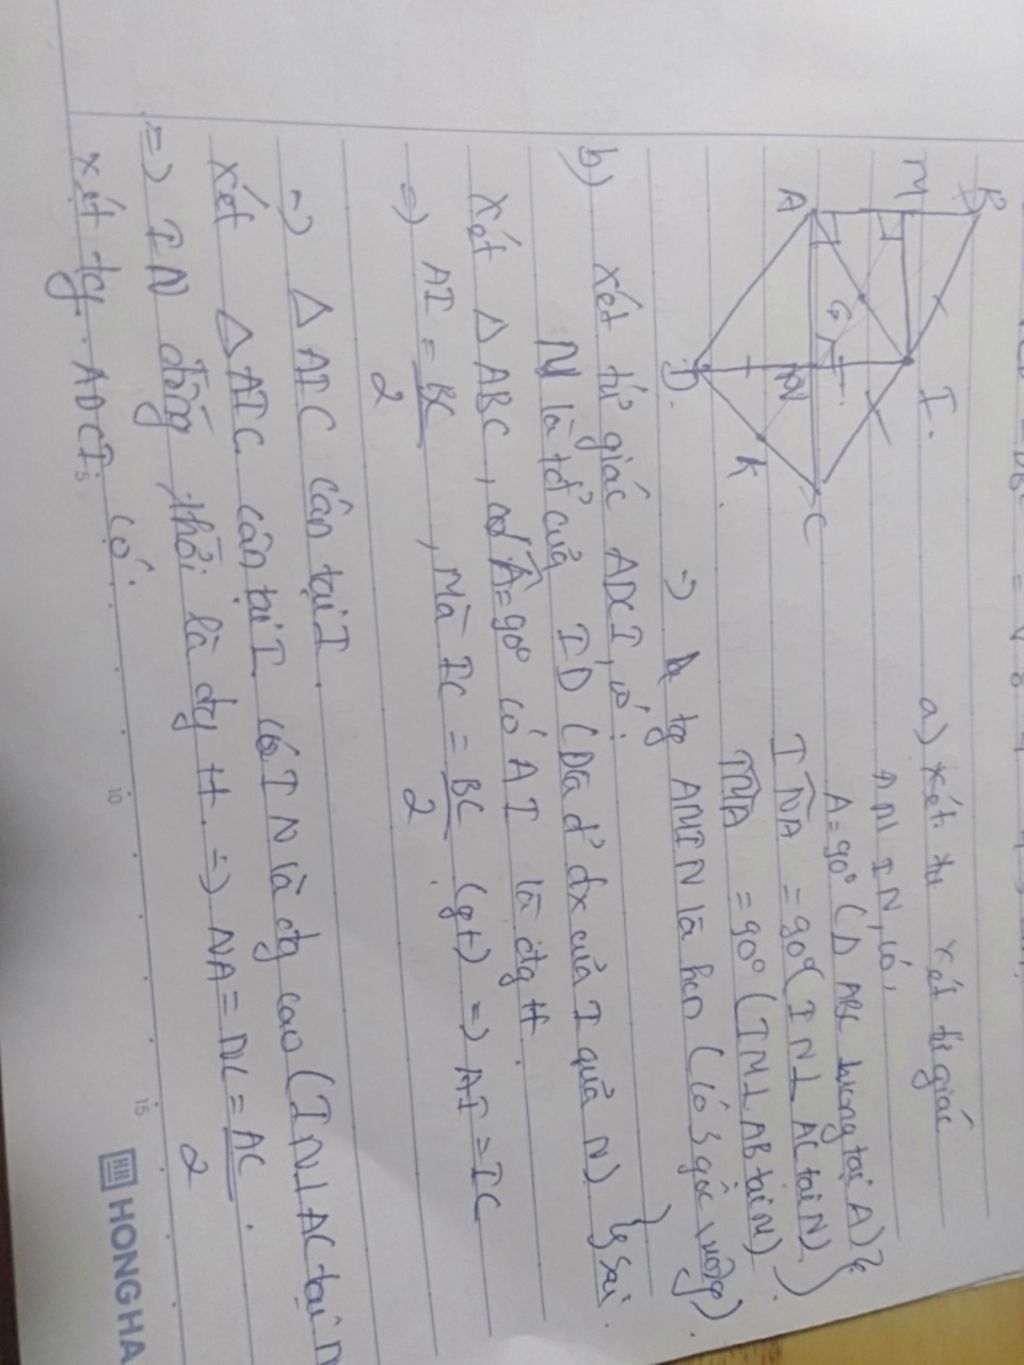 B
M
I.
A
G
N
C
D.
K
a) xét tứ xét tứ giác
AMIN, có,
A = 90° (Δ ABC vuông tại A)
INA = 90° (IN⊥ AC tại N)
= 90° (IM⊥ AB tại M)
=) tg AMIN là hcn (có 3 góc vuông).
b) xét tứ giác ADCI, có:
N là tđ' của ID (D là đ' đx của I qua N) } sai.
xét Δ ABC, có Â=90° có AI là đg tt.
=) AI = BC/2, Mà IC = BC/2 (gt) =) AI = IC
=) Δ AIC cân tại I.
xét Δ AIC cân tại I có IN là đg cao (IN⊥AC tại N
=) IN đồng thời là đg tt. =) NA = NC = AC/2.
xét tg. ADCI: có:
10
15
HONG HA